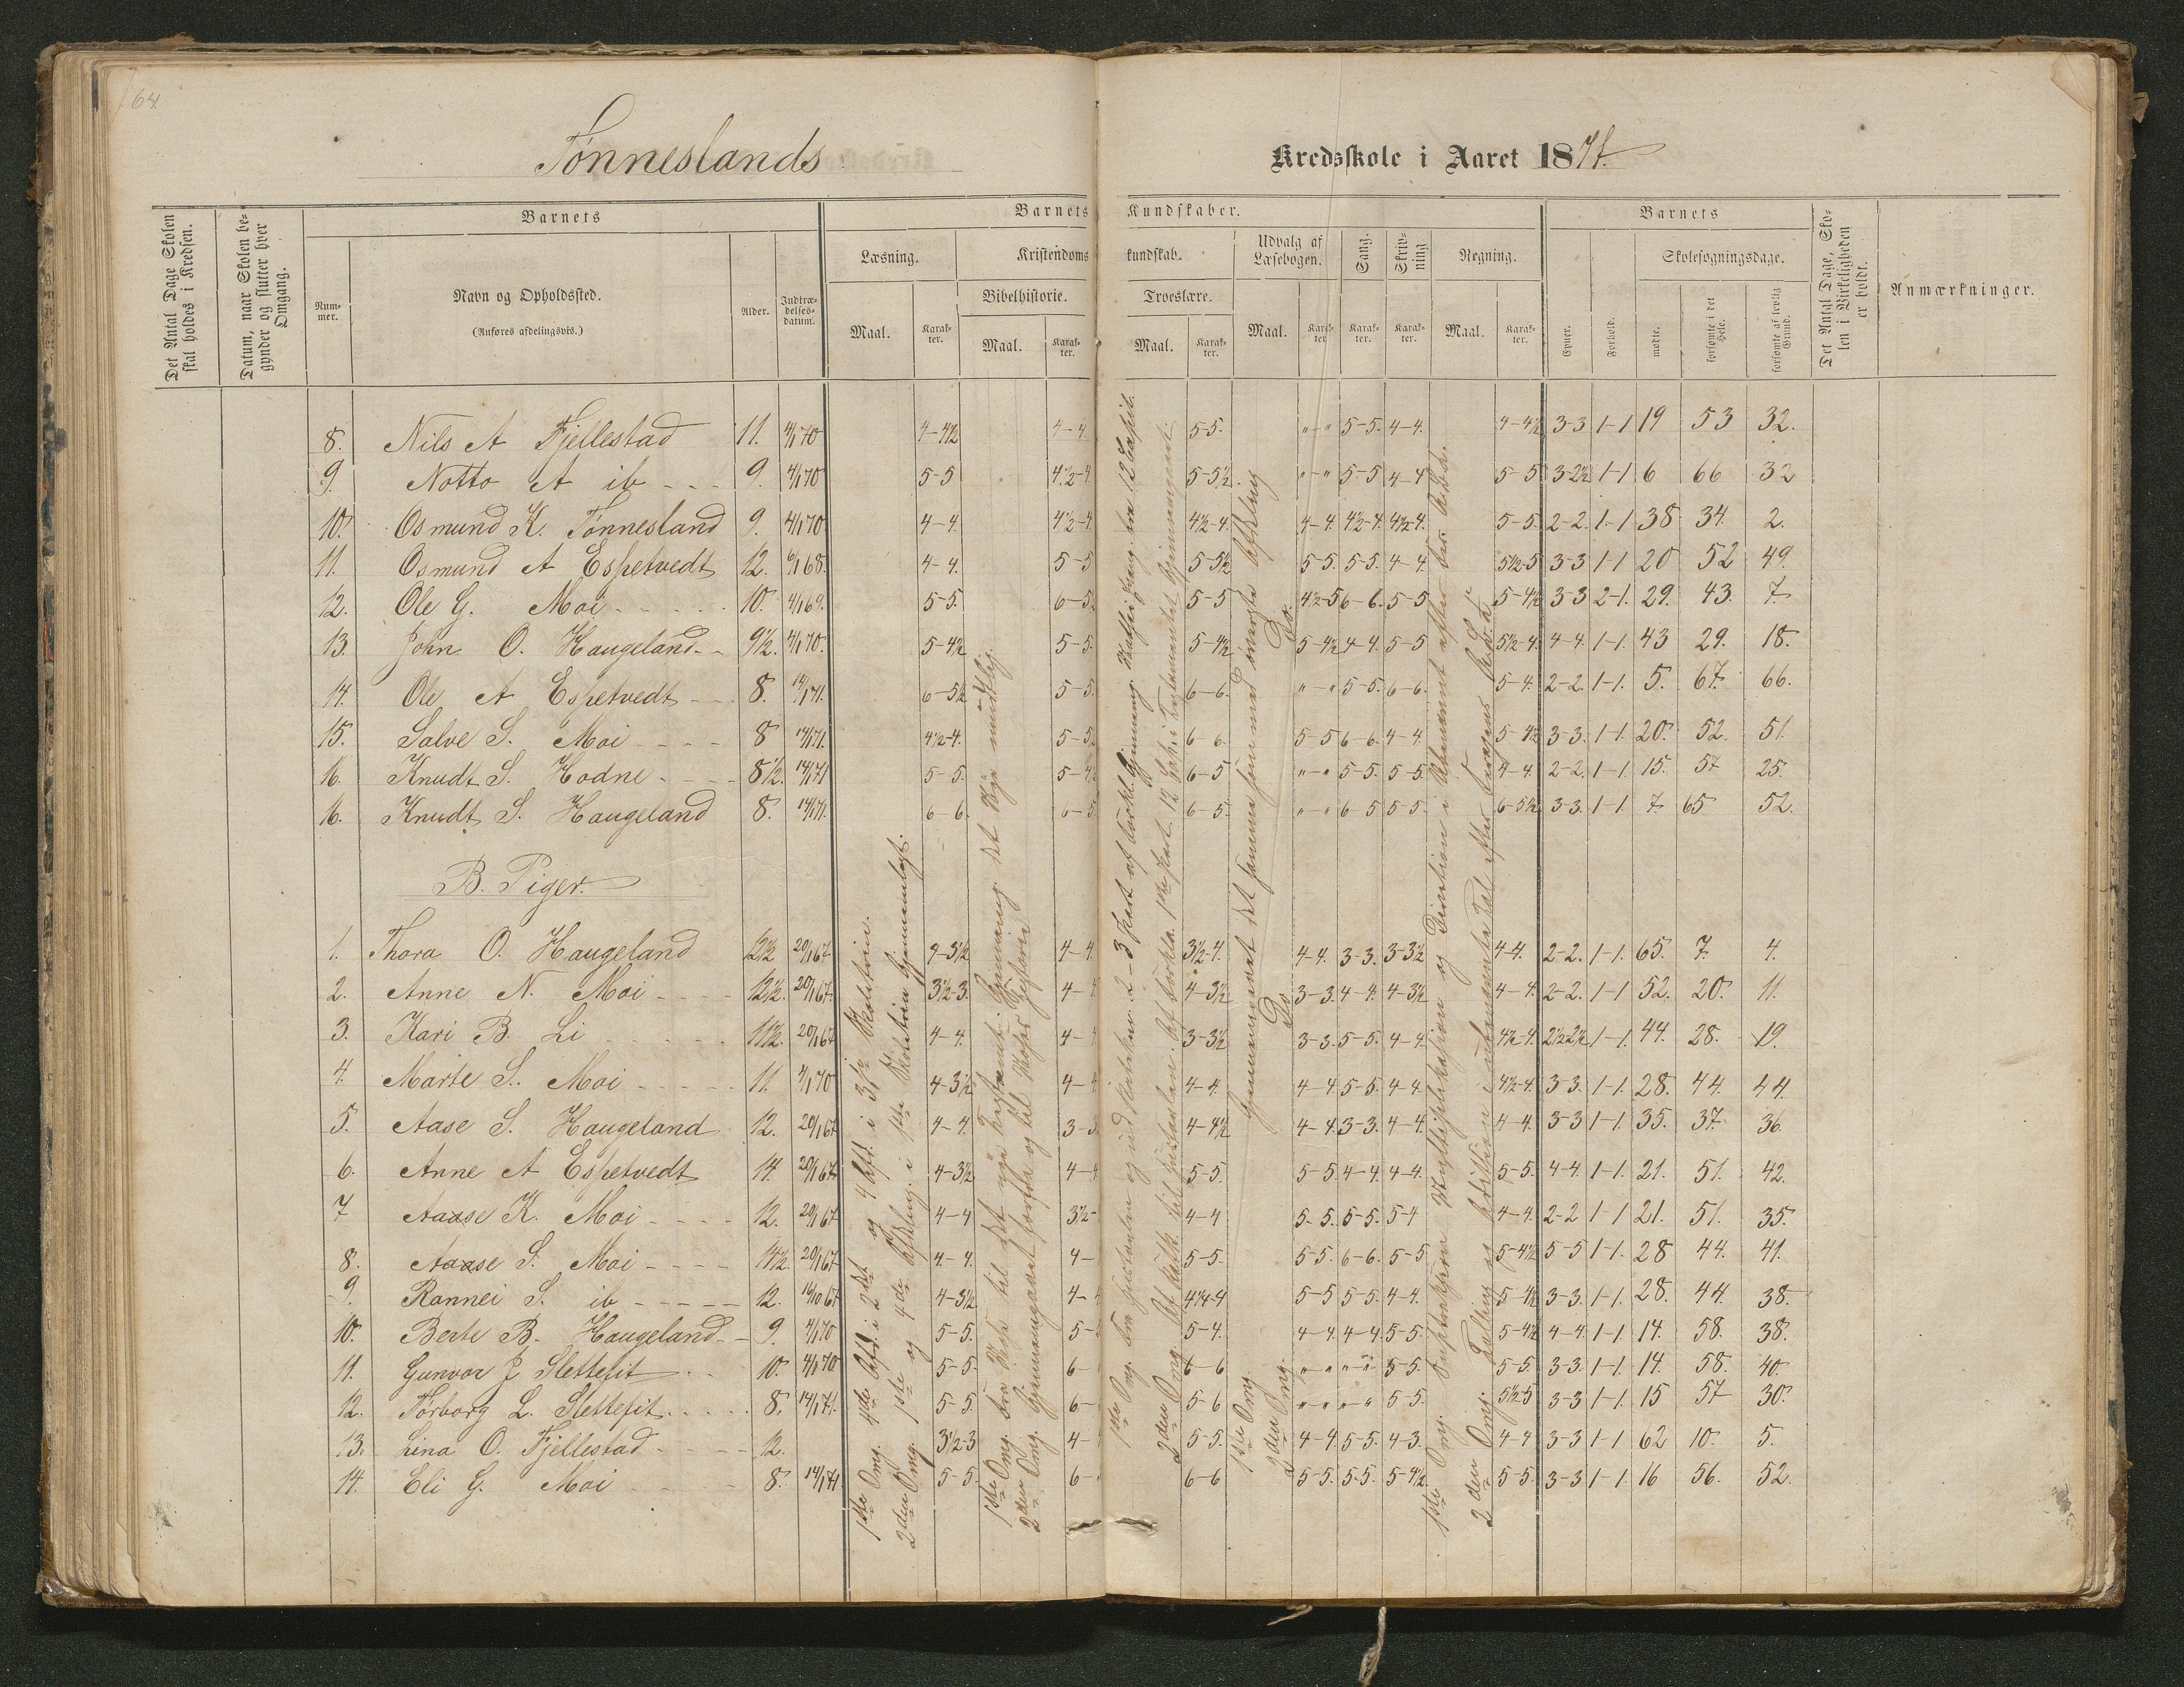 64.
Tønneslands
Kredsskole i Aaret 1871.
Det Antal Dage Skolen skal holdes i Kredsen.
Datum, naar Skolen begynder og slutter hver Omgang.
Barnets
Nummer.
Navn og Opholdssted.
(Anføres afdelingsvis.)
Alder.
Indtrædelsesdatum.
Barnets Kundskaber.
Læsning.
Maal.
Karakter.
Kristendomskundskab.
Bibelhistorie.
Maal.
Karakter.
Troeslære.
Maal.
Karakter.
Udvalg af Læsebogen.
Maal.
Karakter.
Sang.
Karakter.
Skrivning
Karakter.
Regning.
Maal.
Karakter.
Barnets
Evner.
Forhold.
Skolesøgningsdage.
mødte.
forsømte i det Hele.
forsømte af lovlig Grund.
Det Antal Dage, Skolen i Virkeligheden er holdt.
Anmærkninger.
8. Nils A Fjellestad 11. 4/1 70 4-4½ 4-4. 5-5. "-" 5-5. 4-4. 4-4½ 3-3 1-1 19 53 32.
9. Notto A ib - - - 9. 4/1 70 5-5 4½-4 5-5½. "-" 5-5 4-4 5-5 3-2½ 1-1 6 66 32
10. Osmund K. Tønnesland 9. 4/1 70 4-4. 4½-4. 4½-4. 4-4. 4½-4. 4½-4. 5-5. 2-2. 1-1 38 34. 2.
11. Osmund A Espetvedt 12. 6/1 68. 4-4. 5-5 5-5½ 5-5. 5-5. 4-4. 5½-5 3-3 1-1 20 52 49.
12. Ole G. Moi - - - 10. 4/1 69. 5-5. 6-5. 5-5 4½-5 6-6. 5-5 5-4½ 3-3 2-1. 29. 43. 7.
13. John O. Haugeland - - 9½. 4/1 70. 5-4½ 5-5. 5-4½ 5-4½ 4-4. 5-5 5½-4. 4-4. 1-1. 43 29. 18.
14. Ole A Espetvedt - - 8. 14/1 71. 6-5½ 5-5. 6-6. "-" 5-5. 6-6. 5-4. 2-2. 1-1. 5. 67. 66.
15. Salve S. Moi - - - 8 14/1 71. 4½-4. 5-5½ 6-6. 5-5 6-6. 4-4. 5-4½ 3-3. 1-1. 20. 52. 51.
16. Knudt S. Hodne - - - 8½. 14/1 71 5-5. 5-4½ 6-5 "-" 5-5. 5-5. 4-4. 2-2. 1-1. 15. 57 25.
16. Knudt S. Haugeland 8. 14/1 71. 6-6. 6-5. 6-5. "-" 6-5 5-5. 6-5½ 3-3. 1-1 7 65 52.
B. Piger.
1. Thora O. Haugeland 12½ 20/1 67 4-3½ 4-4. 3½-4. 4-4. 3-3. 3-3½ 4-4. 2-2. 1-1. 65. 7. 4.
2. Anne N. Moi - - - 12½. 20/1 67. 3½-3. 4- 4-3½ 3-3. 4-4. 4-3½ 4-4. 2-2. 1-1 52. 20. 11.
3. Kari B. Li - - - 11½. 20/1 67 4-4. 4- 3-3½ 3-3. 5-5. 4-4. 4½-4. 2½-2½ 1-1. 44. 28. 19.
4. Marte S. Moi - - - 11. 4/1 70 4-3½ 4- 4-4. 4-4. 5-5 4-4. 4½-4. 3-3. 1-1. 28. 44. 44.
5. Aase S. Haugeland 12. 20/1 67 4-4. 3-3 4-4½ 4-4. 3-3. 4-4. 4-4. 3-3 1-1. 35. 37. 36.
6. Anne A Espetvedt 14. 20/1 67 4-3½ 4- 5-5. 5-5 4-4 4-4. 5-5. 4-4. 1-1. 21. 51. 42.
7 Aaase K. Moi - - - 12. 20/1 67 4-4 3½- 4-4 5-5. 5-5. 5-4 4-4. 2-2 1-1 21. 51. 35.
8. Aaase S. Moi - - - - 14½. 20/1 67. 4-4. 4- 5-5. 5-5. 6-6. 5-5 5-4½ 5-5 1-1. 28 44. 41.
9. Rannei S. ib - - - - - 12. 16/10 67 4-3½ 4- 4¼-4 5-5 5-5. 4-4. 5-4½ 3-3. 1-1. 28. 44. 38.
10. Berte B. Haugeland - - 9. 4/1 70 5-5. 5- 5-4. 4-4. 4-4. 5-5. 5-4½ 4-4. 1-1. 14. 58. 38.
11. Gunvor J. Slettefit 10. 4/1 70 5-5. 6- 6-6 "-" "-" 5-5. 5-5. 3-3. 1-1. 14. 58. 40.
12. Tørborg L. Slettefit - - - 8. 14/1 71. 5-5. 6- 5-6 "-" "-" 5-5. 5½-5 3-3 1-1. 15 57 30.
13. Lina O. Fjellestad - - - 12. 3½-3 4- 5-5. 4-4. 5-5. 4-3. 4-4 3-3 1-1 62 10. 5.
14. Eli G. Moi - - - 8. 14/1 71. 5-5. 6- 6-6 5-5. 5-5. 5-4½. 5-5. 3-3 1-1. 16 56. 52.
1ste Omg. 4de Afd. i 2det og 4 Afd. i 3die Skoletrin.
2den Omg. 1ste og 4de Afdeling i 1ste Skoletrin Gjennemlagt.
1ste Omg. fra til det nye Testament. Gjennemg. det Nye mundtlig.
2den Omg. Gjennemgaaet forfra og til Historie
1ste Omg. fra Huustavlen og ud 2-3 Part af Forkl. Gjennemg. fra 12 Capit.
2den Omg. til Huustavlen. Af Forkla. 1ste Part.
1ste Omg. Gjennemgaaet det samme som med øverste Afdeling
2den Omg. Do. Do.
1ste Omg. Multiplikasjon og Division i
2den Omg. Tælling og Addition i